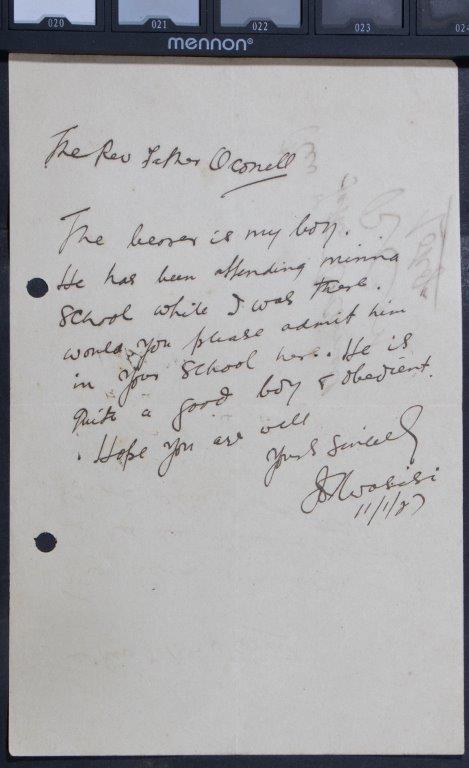 020 021 022 023 024
mennon®
The Rev Father Oconell
The bearer is my boy.
He has been attending minna
School while I was there.
would you please admit him
in your School here. He is
quite a good boy & obedient.
Hope you are well
Yours Sincerely
11/1/27